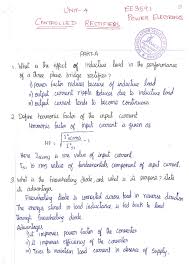 UNIT-4
EE3591
POWER ELECTRONICS
CONTROLLED RECTIFIERS
PART-A
1. What is the effect of inductive load in the performance
of a three phase bridge rectifier?
i) power factor reduces because of inductive load
ii) output current ripple reduces due to inductive load
iii) output current tends to become continuous
2. Define harmonic factor of input current
Harmonic factor of input current is given as
HF =
Here Irms is rms value of input current.
Is1 is rms value of fundamental component of input current.
3. What is freewheeling diode, and what is its purpose? State
its advantages
Freewheeling diode is connected across load in reverse direction
The energy stored in load inductance is fed back to load
through freewheeling diode
Advantages:
i) It improves power factor of the converter
ii) It improves efficiency of the converter
iii) Tries to maintain load current in absence of supply.